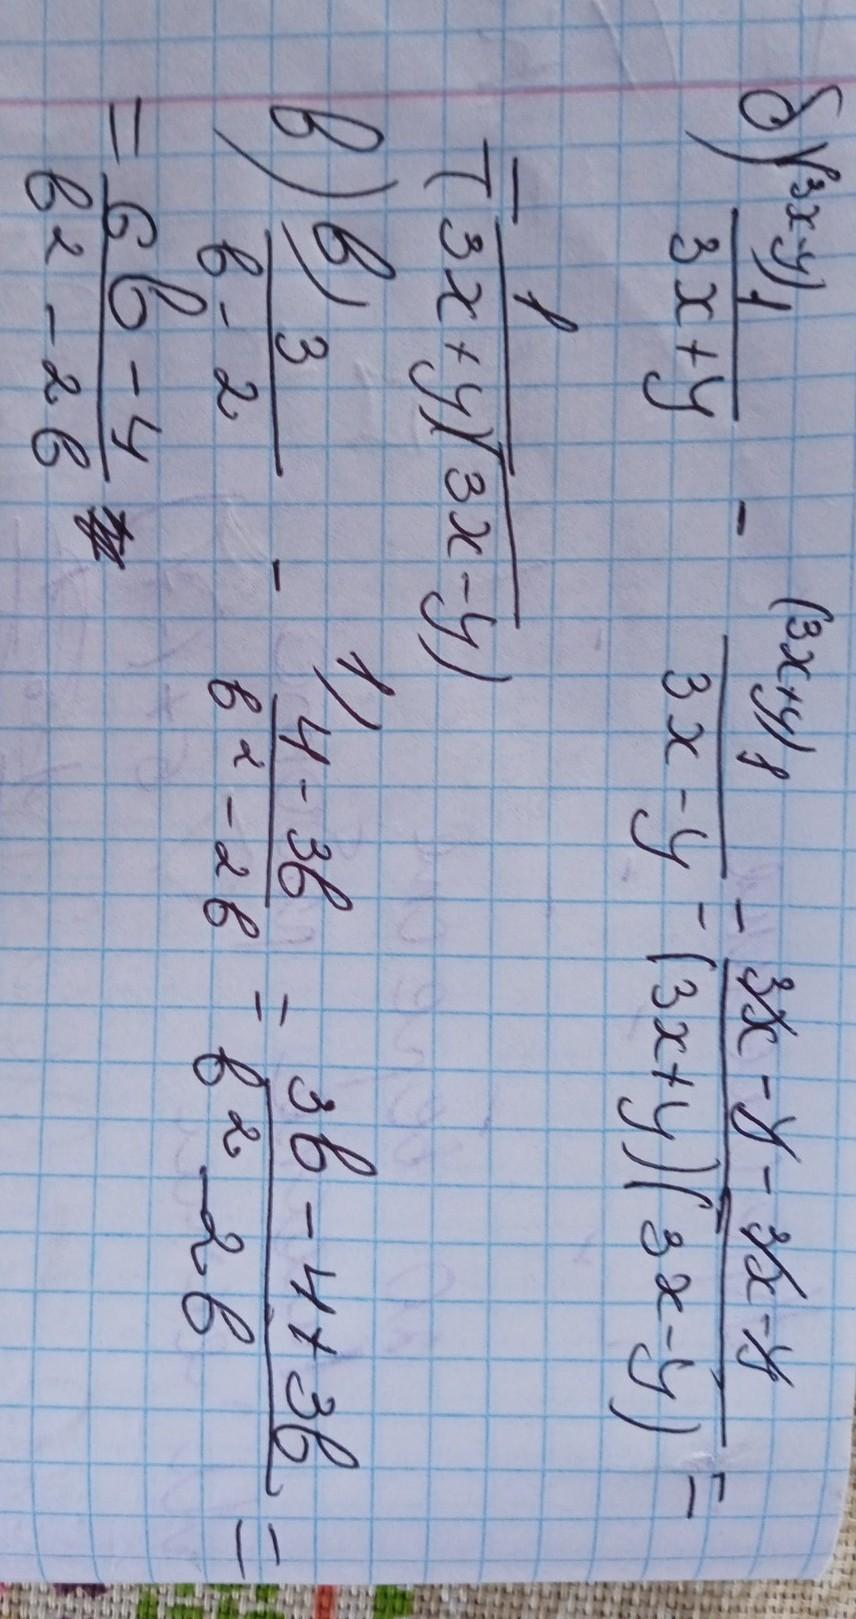 б) (3x-y) 1/(3x+y) - (3x+y) 1/(3x-y) = (3x-y-3x-y)/((3x+y)(3x-y)) =
= 1/((3x+y)(3x-y))
в) в) 3/(в-2) - 1) (4-3в)/(в²-2в) = (3в-4+3в)/(в²-2в) =
= (6в-4)/(в²-2в)